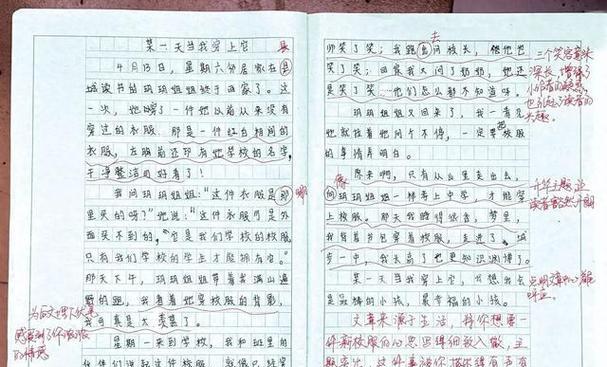 某一天当我穿上它
县
4月13日，星期六邻居家在县
城读书的玥玥姐姐终于回家了。这
一次，她穿了一件她以前从来没有
穿过的衣服。那是一件红白相间的
衣服，左胸前还印有她学校的名字，
干净整洁可好看了！
我问玥玥姐姐："这件衣服是那
哪
里买的呀？"她说："这件衣服可是外
面买不到的，它是我们学校的校服
只有我们学校的学生才能拥有它。"
那天下午，玥玥姐姐带着我满山遍
野的跑，我看着她穿校服的背影，
我可真是太羡慕了。
星期一来到学校，我和班里的
为后文埋下伏笔
感受到了你
的情感
去
师笑了笑；我跑去问校长，
笑了笑；回家我又问了奶奶，她还
是笑了笑……他们怎么都不知道呀。
玥玥姐姐又回来了，我一看见
她就拉着她问个不停，一定要把校服
的事情弄明白。
原来啊，只有从山里走出去，
像
向玥玥姐姐一样考上中学，才能穿
上校服。那天我睡得很香，梦里，
我背着书包穿着校服，走进了
一中，我长高了也更知识渊博了。
某一天当我穿上它，我想我会
是最棒的小孩，最幸福的小孩。
三个笑容意味
深长，增强了
小作者的疑惑，
也引起了读者的
兴趣。
升华主题
点明文章中心
文章来源于生活，将你想要一
件新校服的心思写得细致入微，主